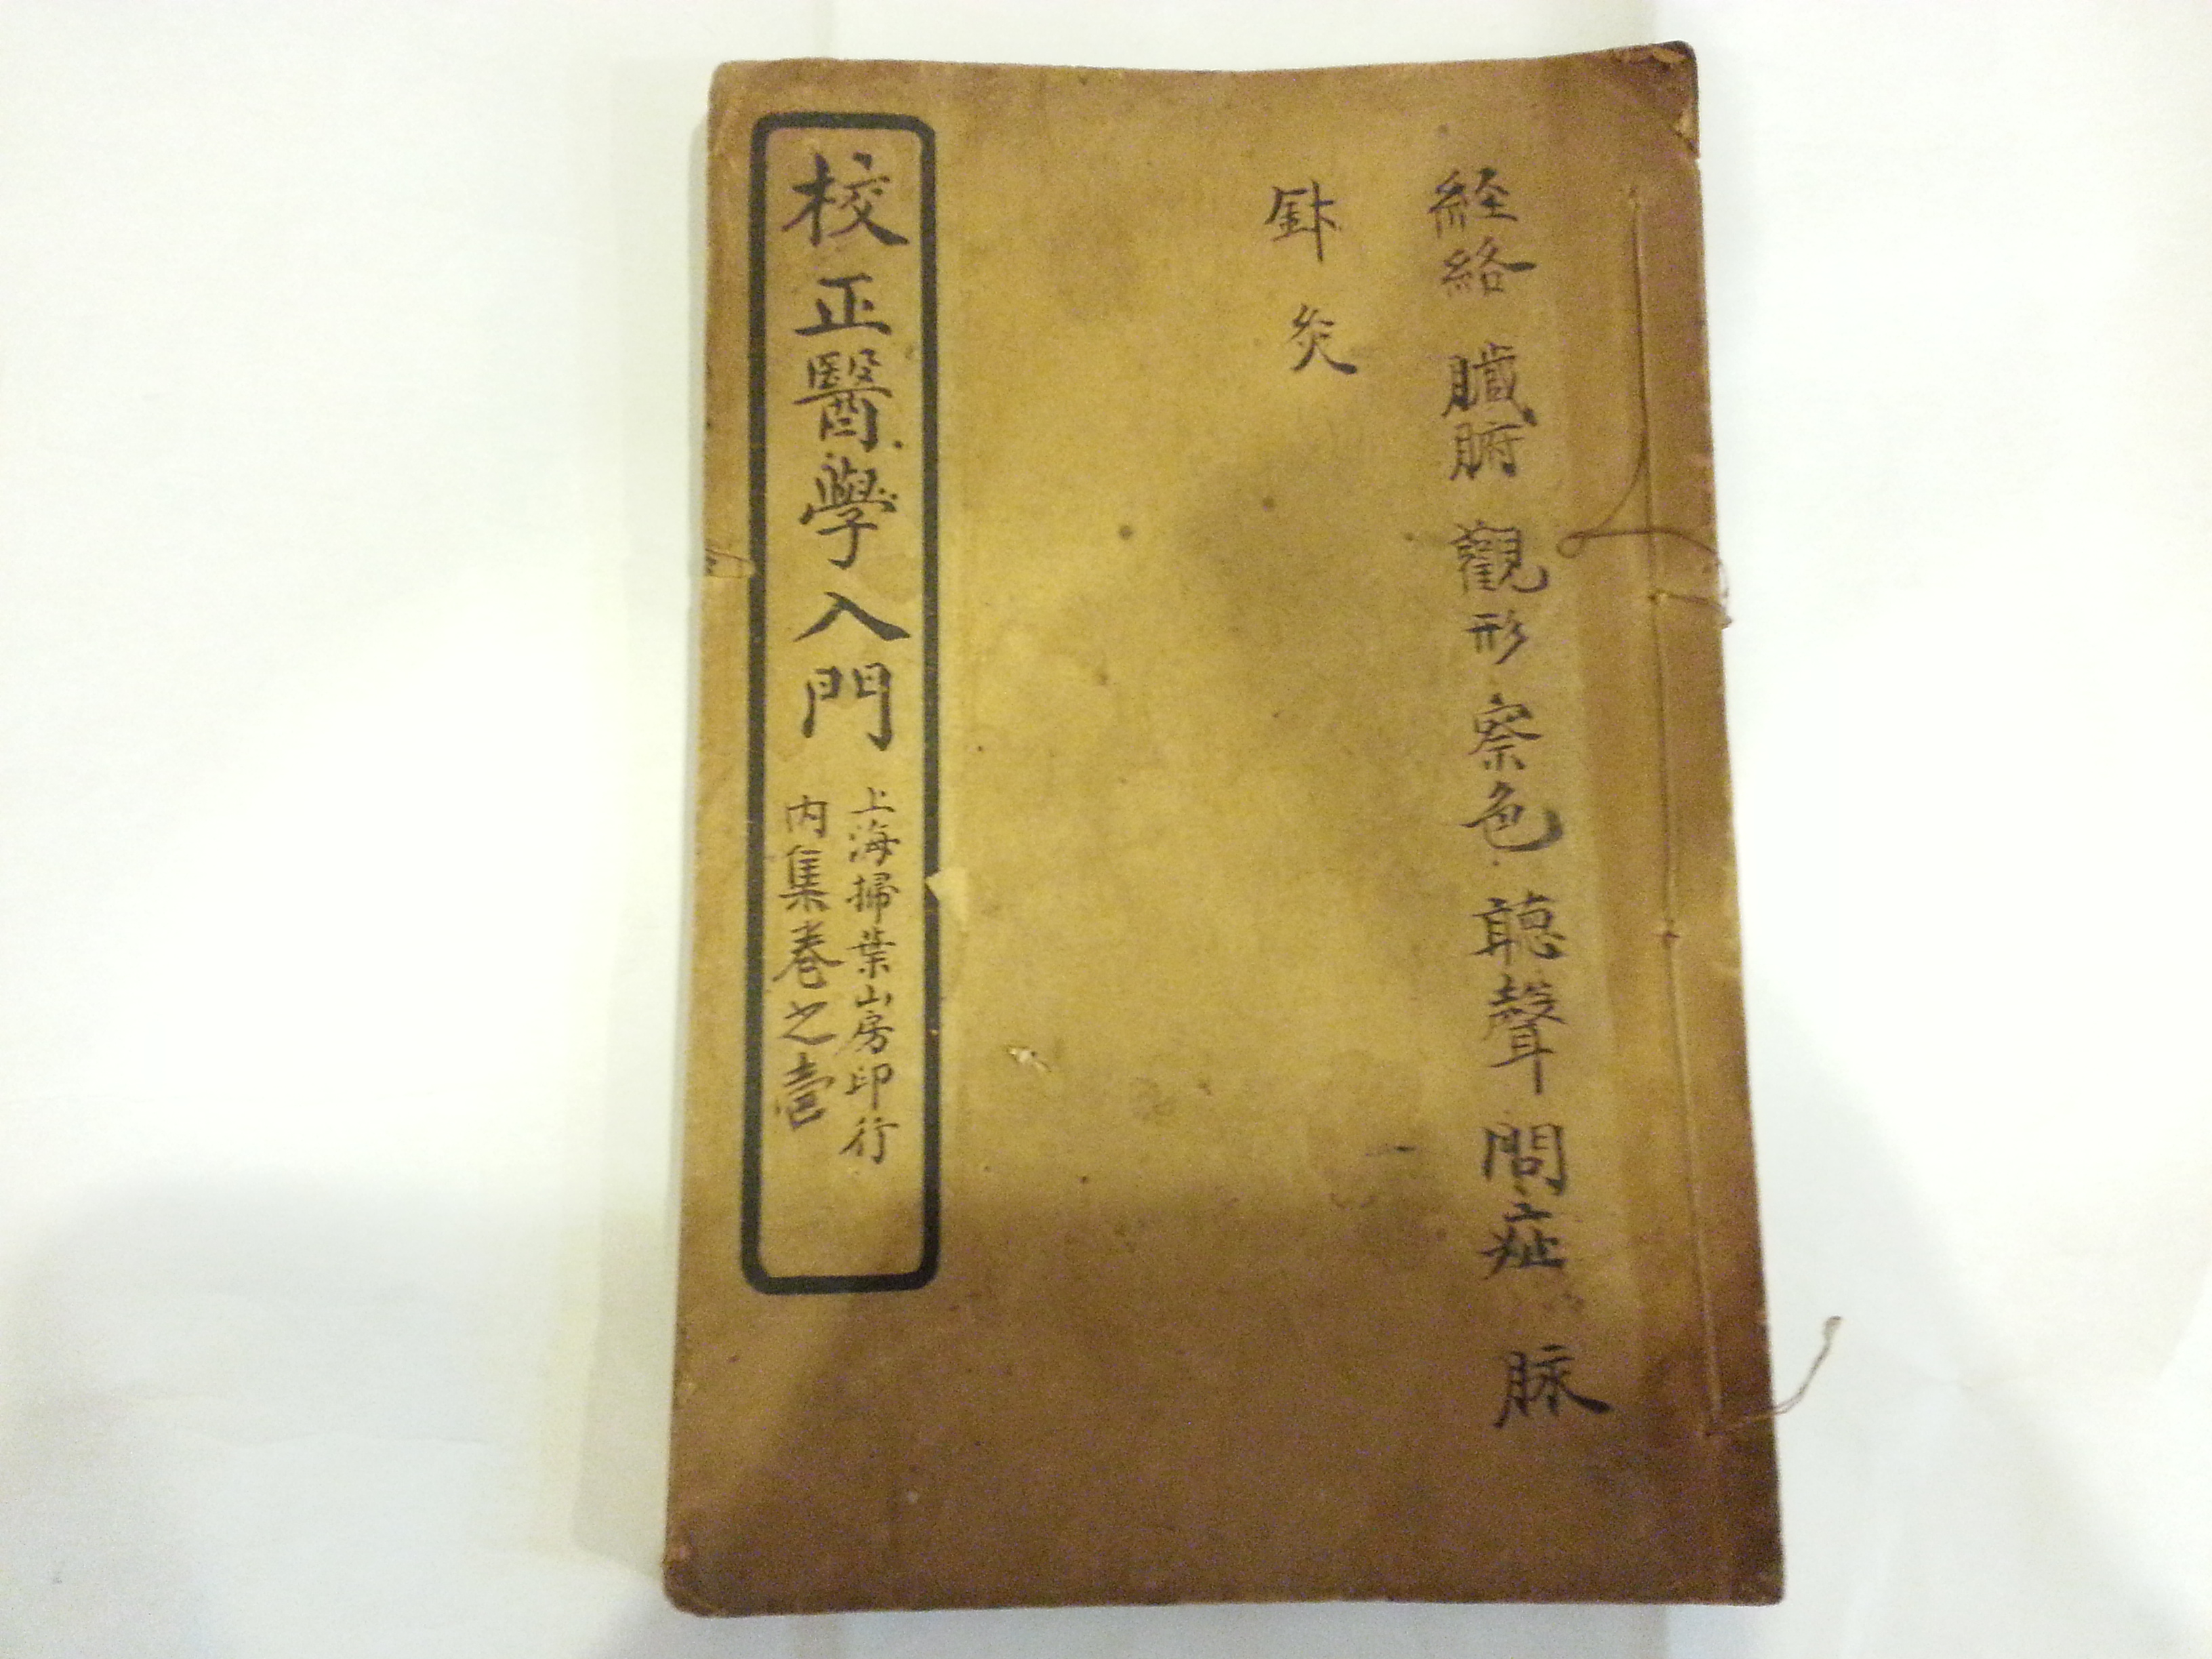 経絡 臓腑 觀形 察色 聴聲 問症 脉
針灸
校正醫學入門
上海掃葉山房印行
內集卷之壹